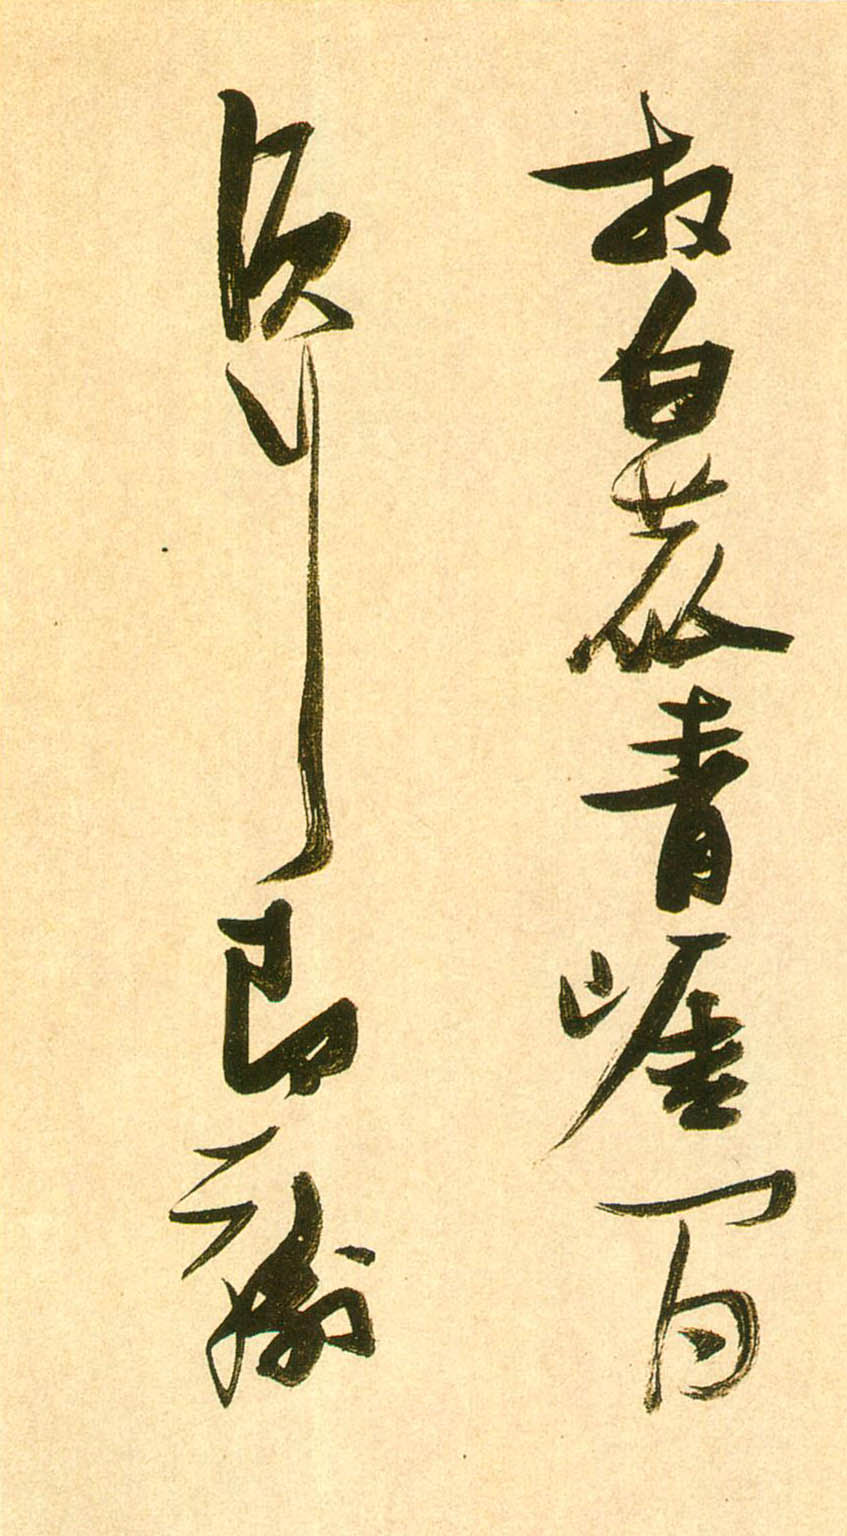 放白鹿青崖間
須行即騎